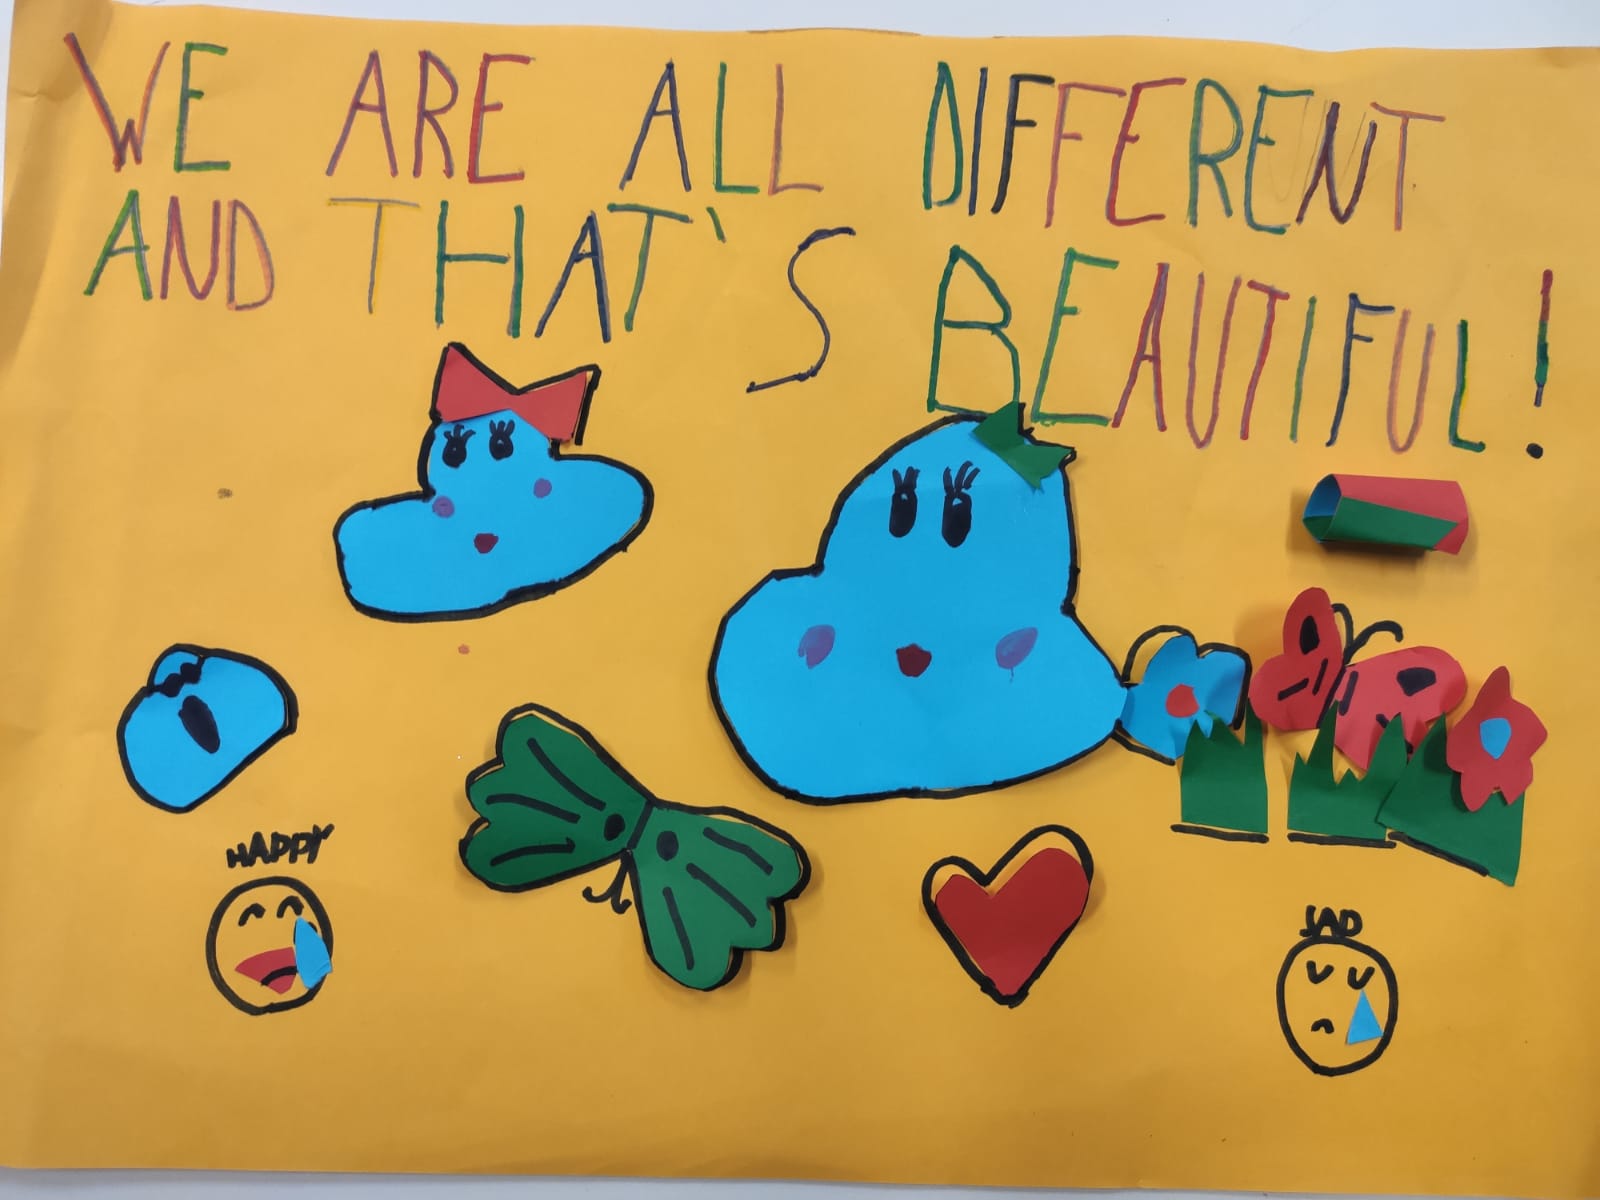 WE ARE ALL DIFFERENT
AND THAT'S BEAUTIFUL!
HAPPY
SAD